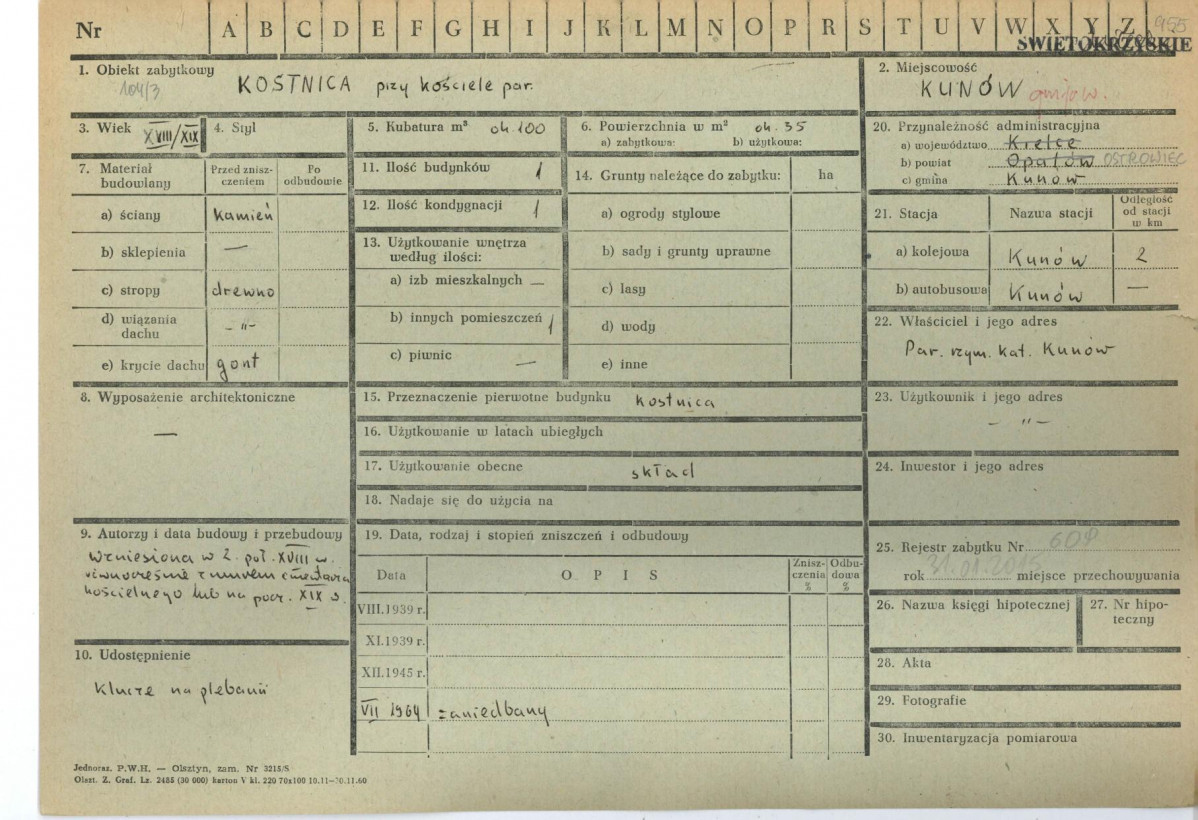 Nr A B C D E F G H I J K L M N O P R S T U V W X Y Z 955
ŚWIĘTOKRZYSKIE
1. Obiekt zabytkowy KOSTNICA przy kościele par.
104/3
2. Miejscowość
KUNÓW
3. Wiek XVIII/XIX
4. Styl
5. Kubatura m³ ok. 100
6. Powierzchnia w m² ok. 35
a) zabytkowa: b) użytkowa:
7. Materiał budowlany
Przed zniszczeniem
Po odbudowie
a) ściany kamień
b) sklepienia —
c) stropy drewno
d) wiązania dachu -"-
e) krycie dachu gont
8. Wyposażenie architektoniczne
—
9. Autorzy i data budowy i przebudowy
Wzniesiona w 2. poł. XVIII w.
równocześnie z murem cmentarza
kościelnego lub na pocz. XIX w.
10. Udostępnienie
Klucze na plebanii
11. Ilość budynków 1
12. Ilość kondygnacji 1
13. Użytkowanie wnętrza
według ilości:
a) izb mieszkalnych —
b) innych pomieszczeń 1
c) piwnic —
14. Grunty należące do zabytku: ha
a) ogrody stylowe
b) sady i grunty uprawne
c) lasy
d) wody
e) inne
15. Przeznaczenie pierwotne budynku kostnica
16. Użytkowanie w latach ubiegłych
17. Użytkowanie obecne skład
18. Nadaje się do użycia na
19. Data, rodzaj i stopień zniszczeń i odbudowy
Data O P I S Zniszczenia % Odbudowa %
VIII.1939 r.
XI.1939 r.
XII.1945 r.
VII 1964 zaniedbany
20. Przynależność administracyjna
a) województwo Kielce
b) powiat Opatów OSTROWIEC
c) gmina Kunów
21. Stacja Nazwa stacji Odległość od stacji w km
a) kolejowa Kunów 2
b) autobusowa Kunów —
22. Właściciel i jego adres
Par. rzym. kat. Kunów
23. Użytkownik i jego adres
- " -
24. Inwestor i jego adres
25. Rejestr zabytku Nr
rok 31.01.2015 miejsce przechowywania
26. Nazwa księgi hipotecznej
27. Nr hipoteczny
28. Akta
29. Fotografie
30. Inwentaryzacja pomiarowa
Jednoraz. P.W.H. — Olsztyn, zam. Nr 3215/S
Olszt. Z. Graf. Lz. 2485 (30 000) karton V kl. 220 70x100 10.11—30.11.60